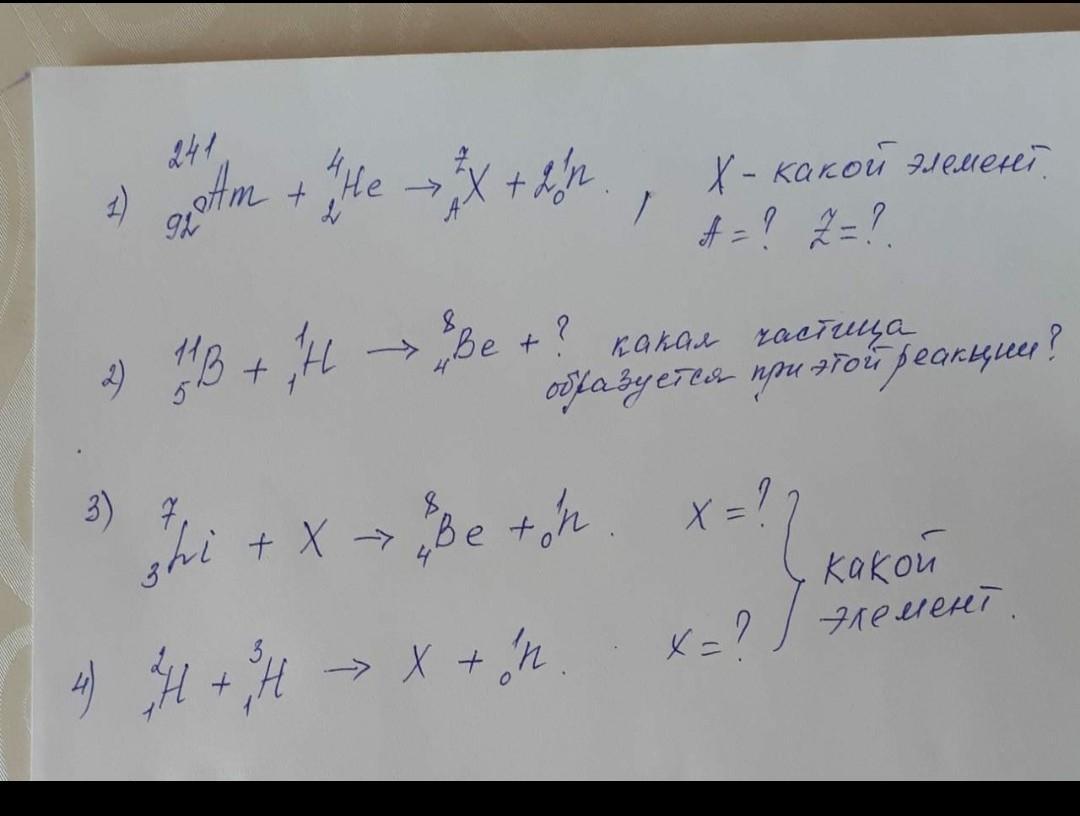 1) ²⁴¹₉₂Am + ⁴₂He → ⁷_AX + 2¹₀n. , X - какой элемент.
A = ? Z = ?.
2) ¹¹₅B + ¹₁H → ⁸₄Be + ? какая частица
образуется при этой реакции?
3) ⁷₃Li + X → ⁸₄Be + ¹₀n. X = ?
какой
элемент.
4) ²₁H + ³₁H → X + ¹₀n. X = ?